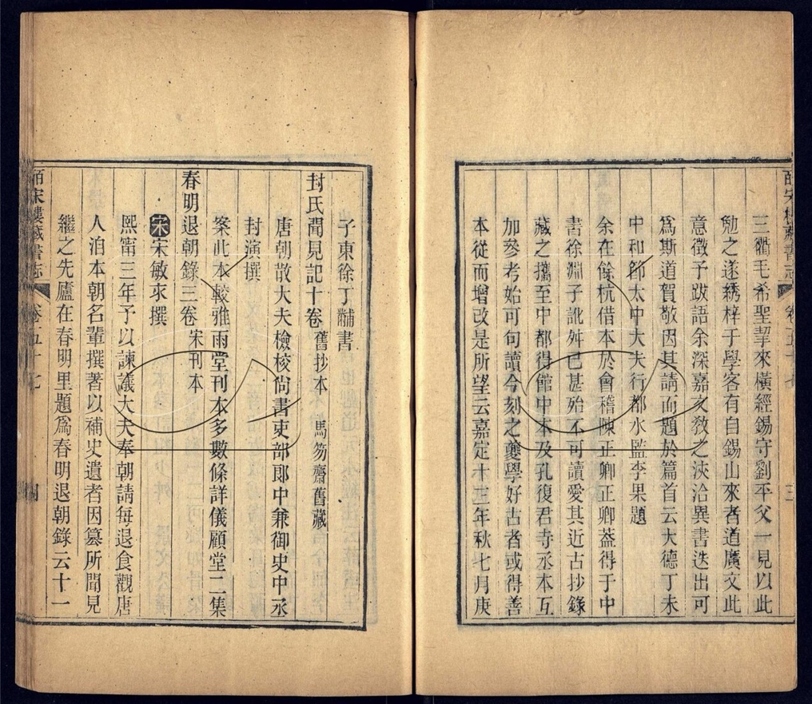 三衢毛希聖挈來橫經錫守劉平父一見以此
勉之遂綉梓于學客有自錫山來者道廣文此
意徵予跋語余深嘉文敎之浹洽異書迭出可
爲斯道賀敬因其請而題於篇首云大德丁未
中和節太中大夫行都水監李果題
余在餘杭借本於會稽陳正卿正卿蓋得于中
書徐淵子訛舛已甚殆不可讀愛其近古抄錄
藏之攜至中都得館中本及孔復君寺丞本互
加參考始可句讀今刻之夔學好古者或得善
本從而增改是所望云嘉定十三年秋七月庚
皕宋樓藏書志
卷五十七
三
子東徐丁黼書
封氏聞見記十卷 舊抄本 馬笏齋舊藏
唐朝散大夫檢校尙書吏部郞中兼御史中丞
封演撰
案此本較雅雨堂刊本多數條詳儀顧堂二集
春明退朝錄三卷 宋刊本
宋宋敏求撰
熙甯三年予以諫議大夫奉朝請每退食觀唐
人洎本朝名輩撰著以補史遺者因纂所聞見
繼之先廬在春明里題爲春明退朝錄云十一
皕宋樓藏書志
卷五十七
四